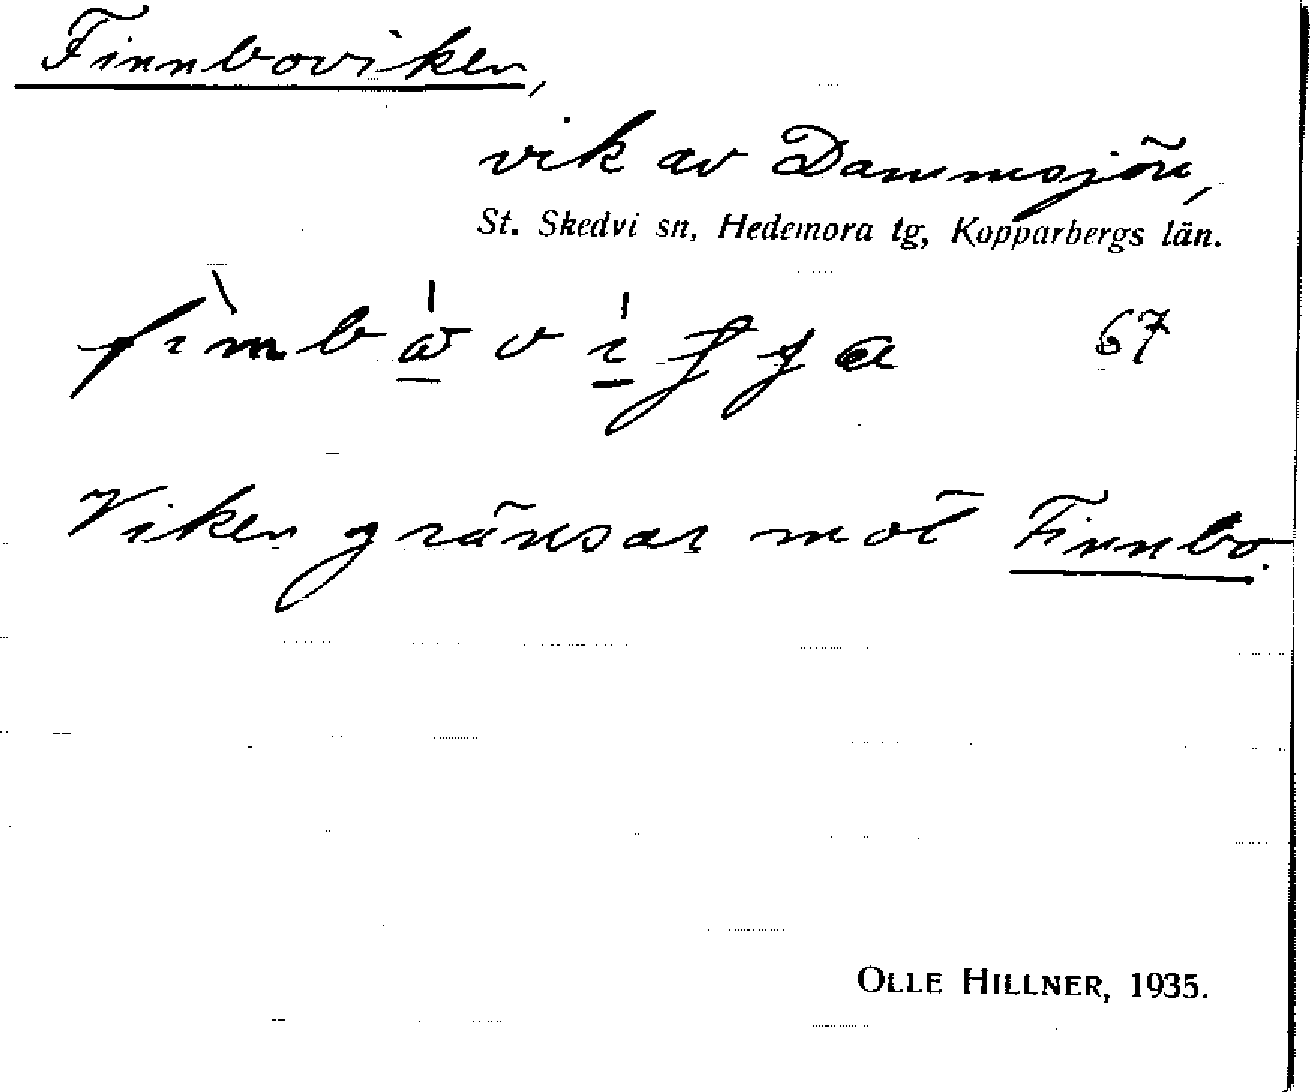 Finnboviken,
vik av Dammsjön,
St. Skedvi sn, Hedemora tg, Kopparbergs län.
67
Viken gränsar mot Finnbo.
OLLE HILLNER, 1935.